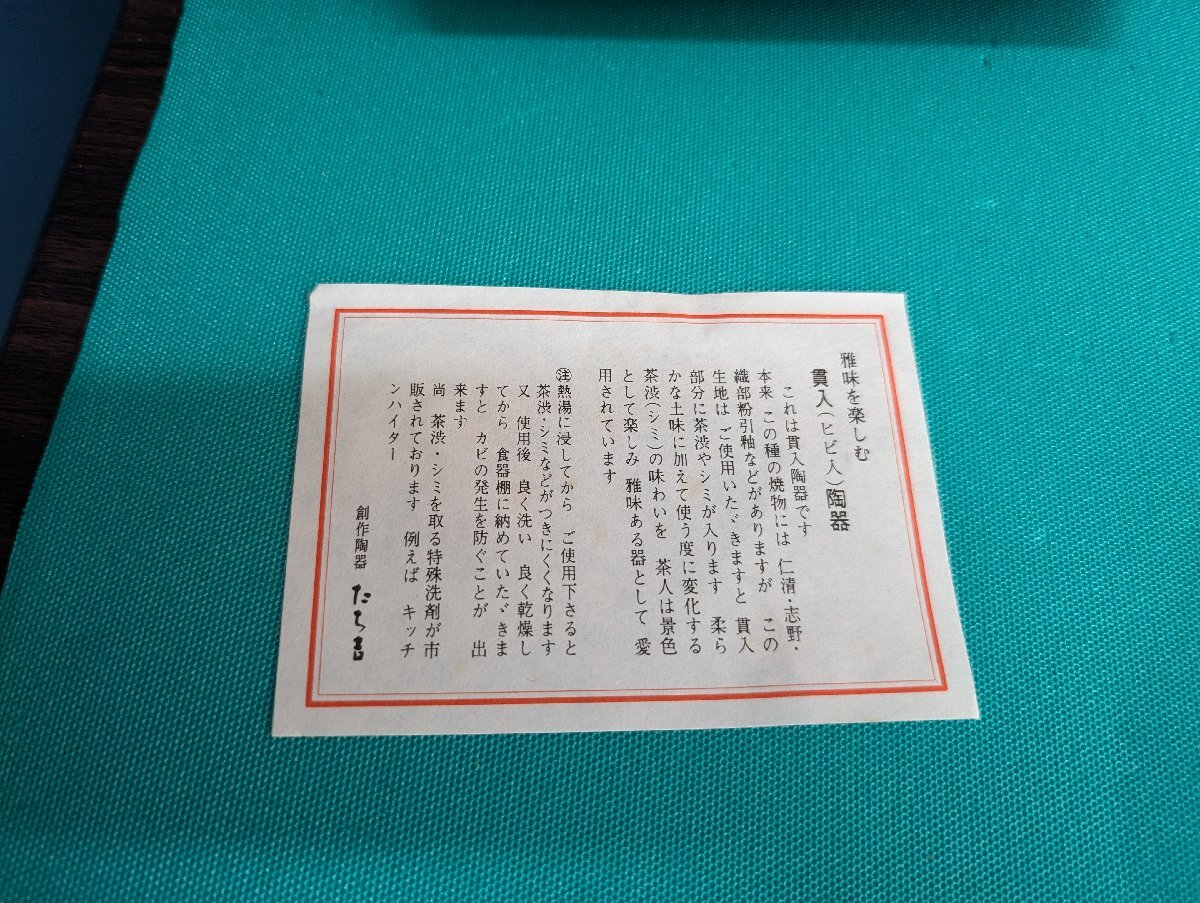 雅味を楽しむ
貫入(ヒビ入)陶器
これは貫入陶器です
本来 この種の焼物には 仁清・志野・
織部粉引釉などがありますが この
生地は ご使用いたゞきますと 貫入
部分に茶渋やシミが入ります 柔ら
かな土味に加えて使う度に変化する
茶渋(シミ)の味わいを 茶人は景色
として楽しみ 雅味ある器として 愛
用されています
㊟熱湯に浸してから ご使用下さると
茶渋・シミなどがつきにくくなります
又 使用後 良く洗い 良く乾燥し
てから 食器棚に納めていたゞきま
すと カビの発生を防ぐことが 出
来ます
尚 茶渋・シミを取る特殊洗剤が市
販されております 例えば キッチ
ンハイター
創作陶器 たち吉